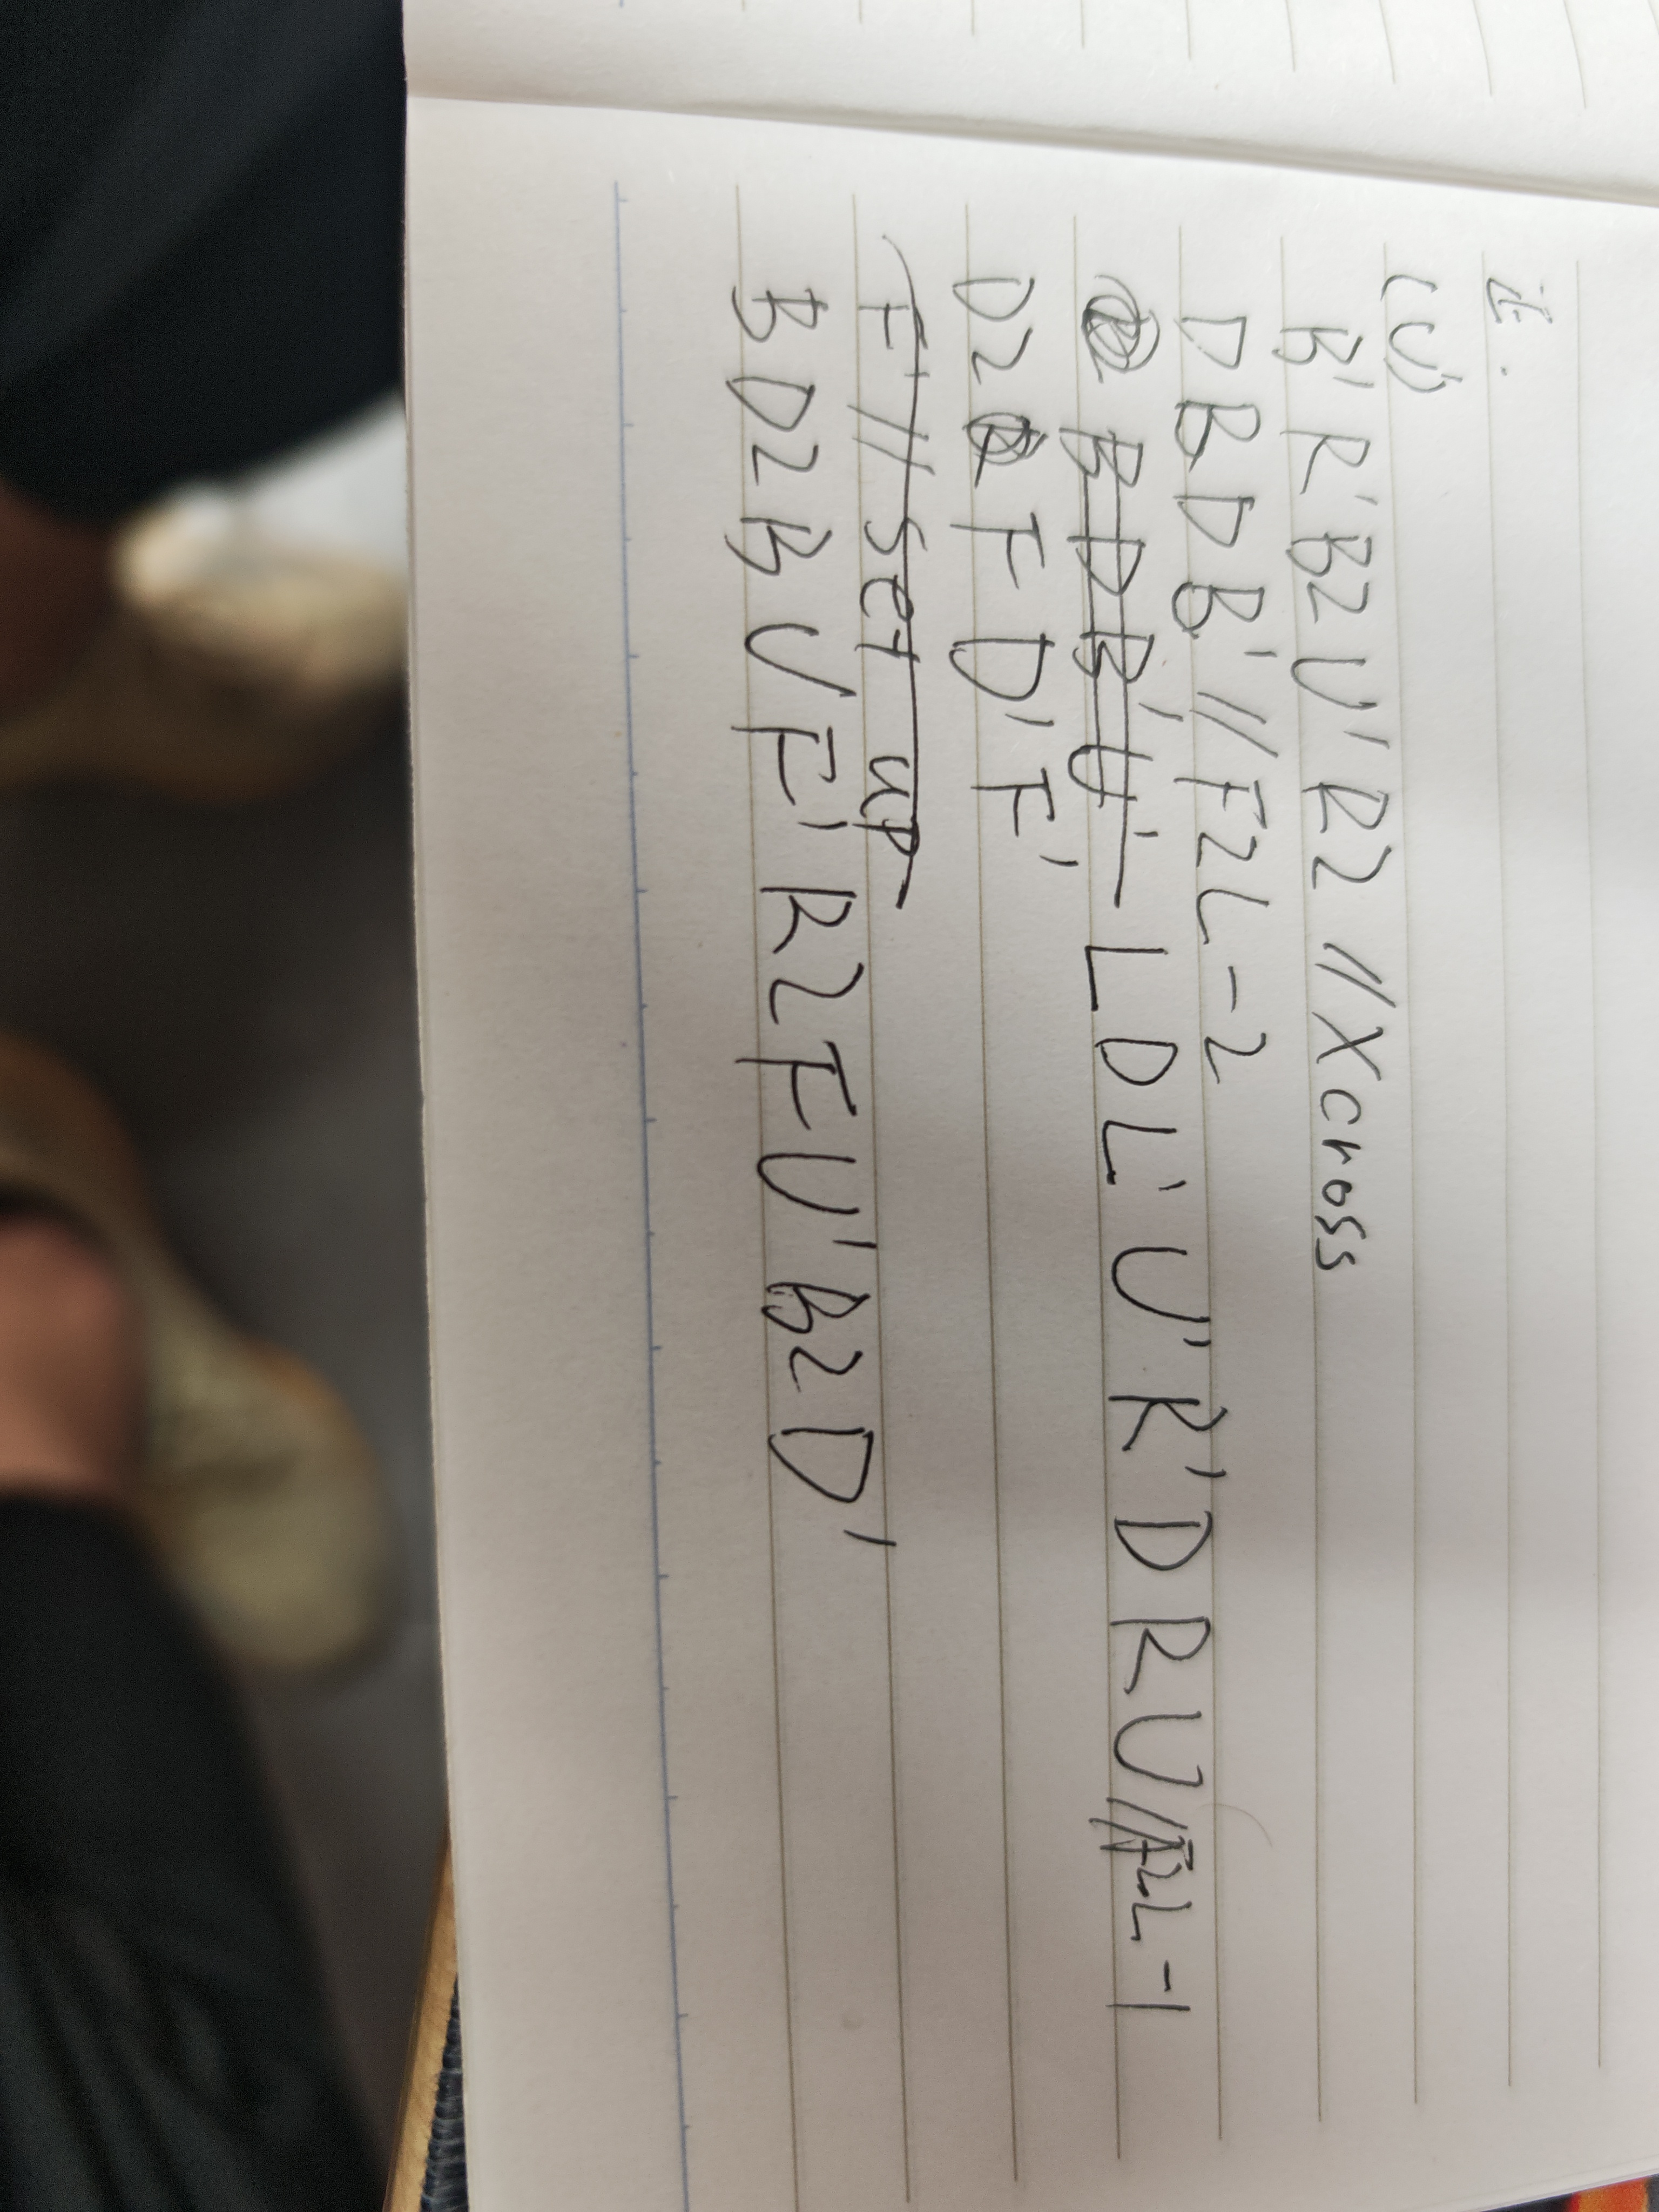 正.
(U)
B' R' B2 U' R2 // Xcross
D B D B' // F2L-2
B D B' U' L D L' U' R' D R U // F2L-1
D2 F D' F'
F' // Set up
B D2 B U F' R2 F U' B2 D'